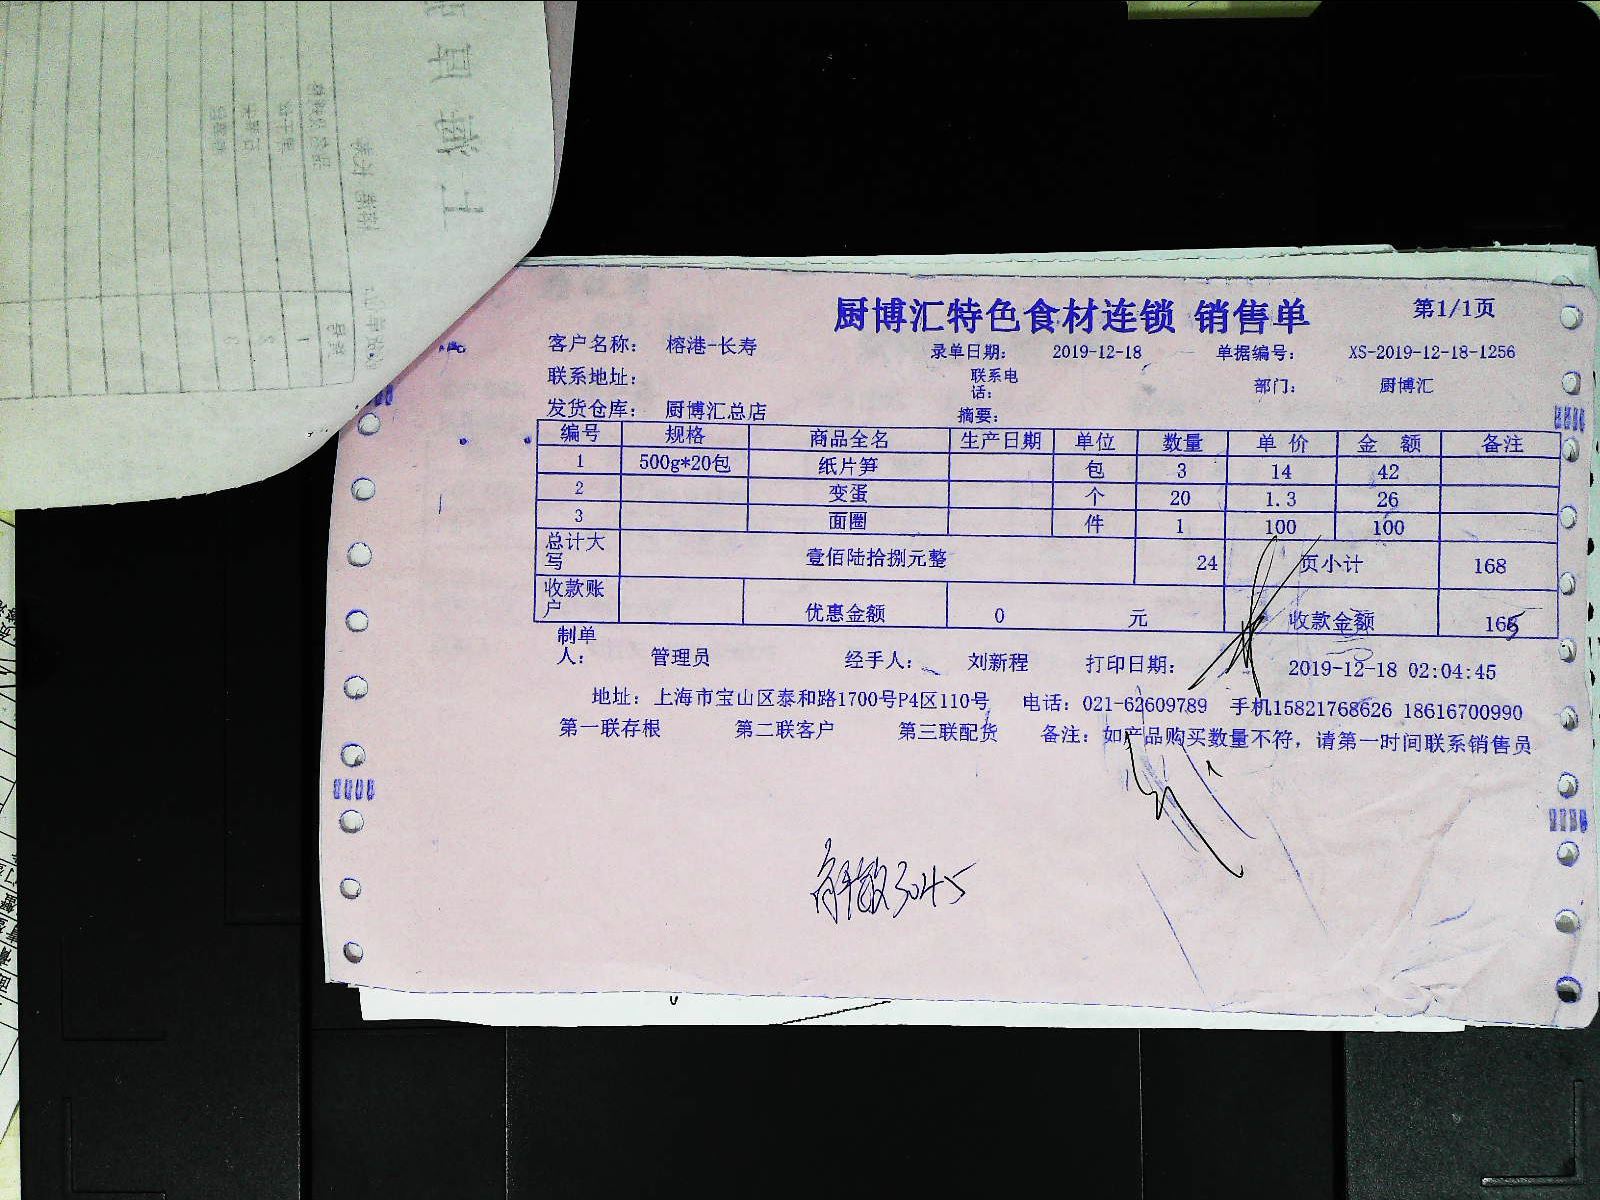 厨博汇特色食材连锁 销售单 第1/1页
客户名称： 榕港-长寿 录单日期： 2019-12-18 单据编号： XS-2019-12-18-1256
联系地址： 联系电话： 部门： 厨博汇
发货仓库： 厨博汇总店 摘要：
编号 规格 商品全名 生产日期 单位 数量 单 价 金 额 备注
1 500g*20包 纸片笋 包 3 14 42
2 变蛋 个 20 1.3 26
3 面圈 件 1 100 100
总计大写 壹佰陆拾捌元整 24 页小计 168
收款账户 优惠金额 0 元 收款金额
制单人： 管理员 经手人： 刘新程 打印日期： 2019-12-18 02:04:45
地址：上海市宝山区泰和路1700号P4区110号 电话：021-62609789 手机15821768626 18616700990
第一联存根 第二联客户 第三联配货 备注：如产品购买数量不符，请第一时间联系销售员
3045